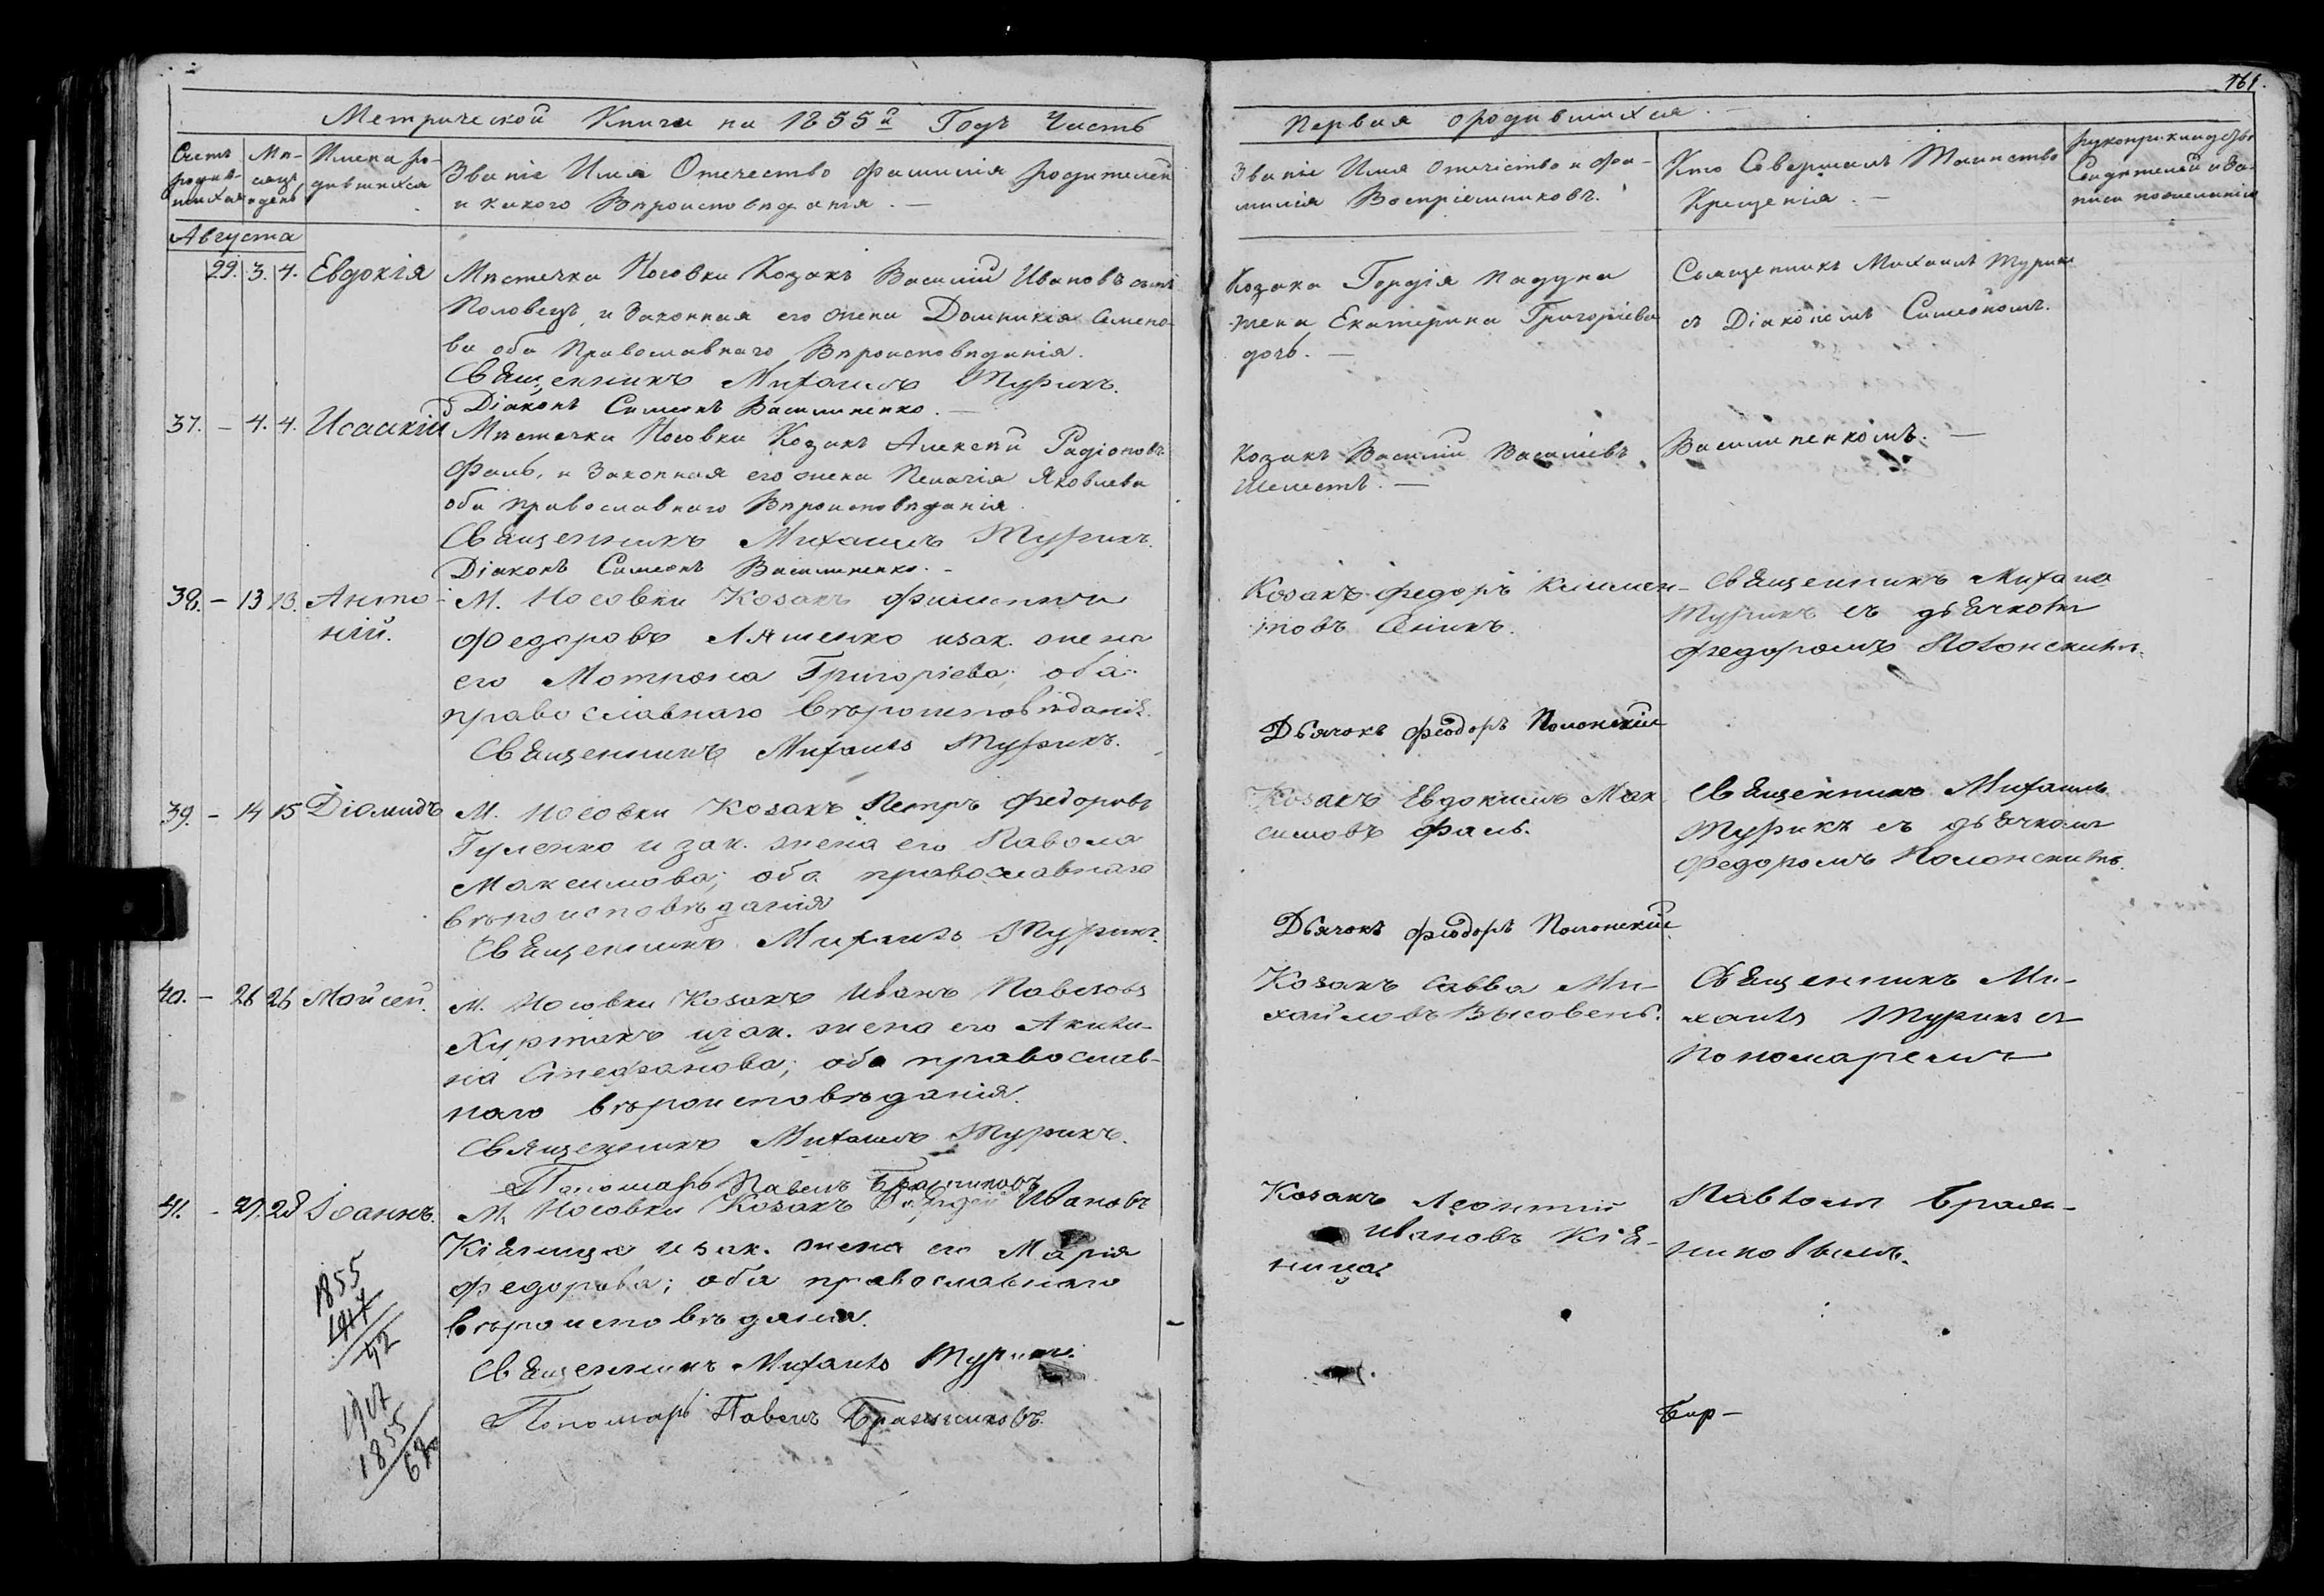 161.
Метрической Книги на 1855й Годъ Часть
Первая о родившихся
Счетъ родив-шихся
Мѣ-сяцъ и день
Имена ро-дившихся
Званіе Имя Отечество Фамилія родителей
и какого Вѣроисповѣданія. —
Званіе Имя Отечество и фа-
милія Воспріемниковъ.
Кто Совершалъ Таинство
Крещенія. —
рукоприкладство
Свидетелей о за-
писи по желанію
Августа
29. 3. 4. Евдокія
Мѣстечка Носовки Козакъ Василій Ивановъ сынъ
Половецъ, и Законная его жена Домникія Семено-
ва оба Православнаго Вѣроисповѣданія.
Священникъ Михаилъ Турикъ.
Діаконъ Симеонъ Василиненко. —
Козака Гордія Падуна
жена Екатерина Григоріева
дочь. —
Священникъ Михаилъ Турикъ
съ Діакономъ Симеономъ.
37. — 4. 4. Исаакій
Мѣстечка Носовки Козакъ Алексѣй Радіоновъ
Фаль, и Законная его жена Пелагія Яковлева
оба православнаго Вѣроисповѣданія.
Священникъ Михаилъ Турикъ.
Діаконъ Симеонъ Василиненко. —
Козакъ Василій Василіевъ
Шелестъ. —
Василиненкомъ. —
38. — 13 13. Анто-
ній.
М. Носовки Козакъ Филиппъ
Федоровъ Ляшенко и зак. жена
его Мотрона Григоріева; оба
православнаго вѣроисповѣданія.
Священникъ Михаилъ Турикъ.
Козакъ Федоръ Климен-
товъ Сѣникъ.
Дьячокъ Феодоръ Полонскій
Священникъ Михаилъ
Турикъ съ дьячкомъ
Федоромъ Полонскимъ.
39. — 14 15 Діомидъ
М. Носовки Козакъ Петръ Федоровъ
Гуленко и зак. жена его Павола
Максимова; оба православнаго
вѣроисповѣданія
Священникъ Михаилъ Турикъ.
Козакъ Евдокимъ Мак-
симовъ Фаль.
Дьячокъ Феодоръ Полонскій
Священникъ Михаилъ
Турикъ съ дьячкомъ
Федоромъ Полонскимъ.
40. — 26 26 Мойсей.
М. Носовки Козакъ Иванъ Павловъ
Хуртакъ и зак. жена его Акили-
на Стефанова; оба православ-
наго вѣроисповѣданія.
Священникъ Михаилъ Турикъ.
Пономарь Павелъ Бражниковъ
Козакъ Савва Ми-
хайловъ Высовень.
Священникъ Ми-
хаилъ Турикъ съ
Пономаремъ
41. — 27. 28 Іоаннъ.
М. Носовки Козакъ Ивановъ
Кіяница и зак. жена его Марія
Федорова; оба православнаго
вѣроисповѣданія.
Священникъ Михаилъ Турикъ.
Пономарь Павелъ Бражниковъ.
Козакъ Леонтій
Ивановъ Кія-
ница.
Павломъ Браж-
никовымъ.
1855
42
1917
1855
62